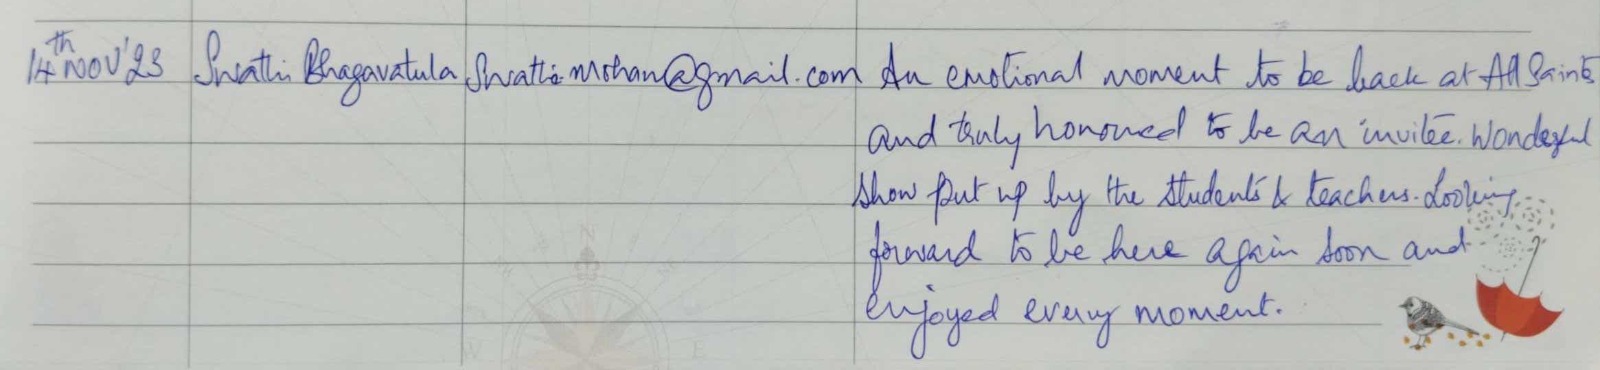 14th NOV'23 Swathi Bhagavatula Swathi.mohan@gmail.com An emotional moment to be back at All Saints
and truly honoured to be an invitee. Wonderful
show put up by the students & teachers. Looking
forward to be here again soon and
enjoyed every moment.
N
W E